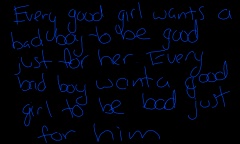 Every good girl wants a
bad boy to be good
just for her Every
bad boy want a good
girl to be bad just
for him